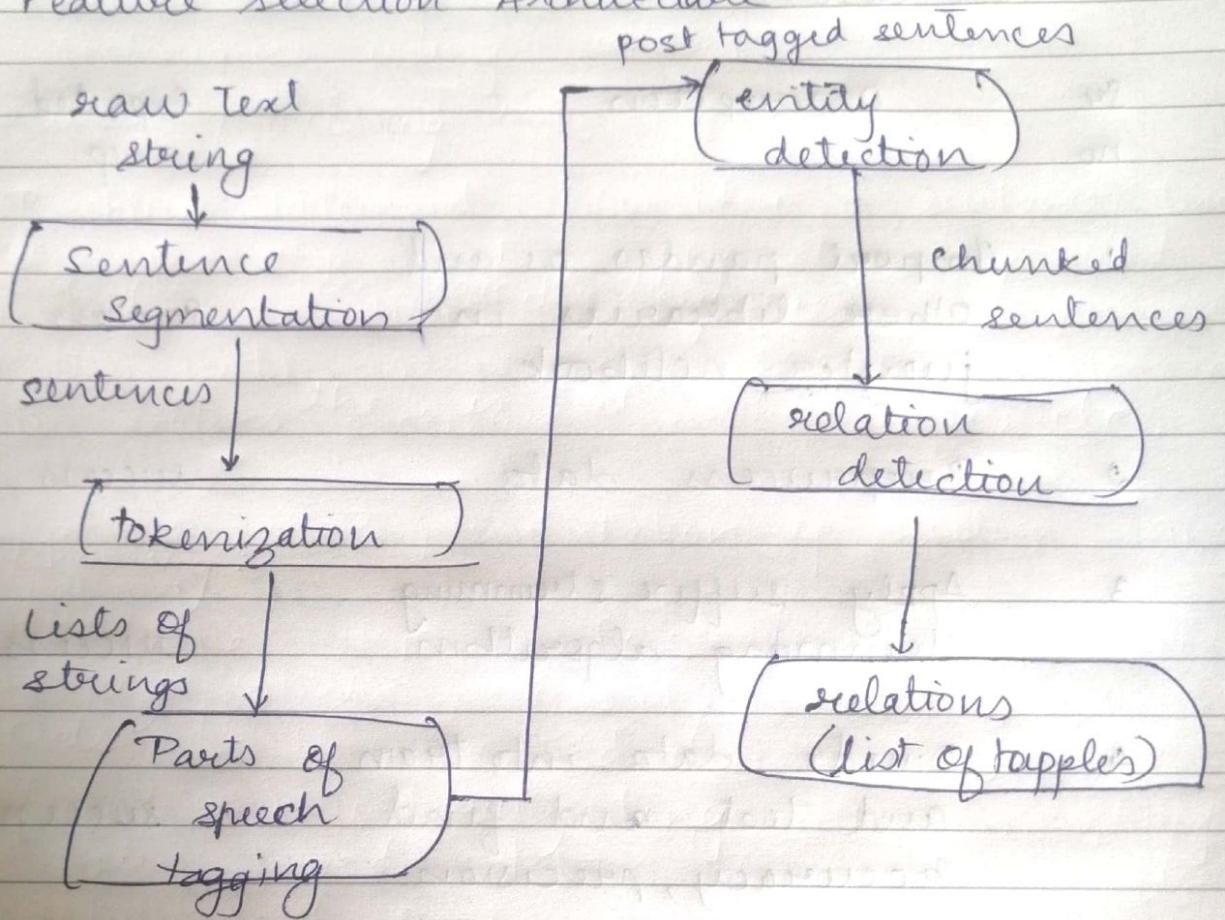 Feature Selection Architecture
raw text
string
Sentence
segmentation
sentences
tokenization
Lists of
strings
Parts of
speech
tagging
post tagged sentences
entity
detection
chunked
sentences
relation
detection
relations
(list of tapples)